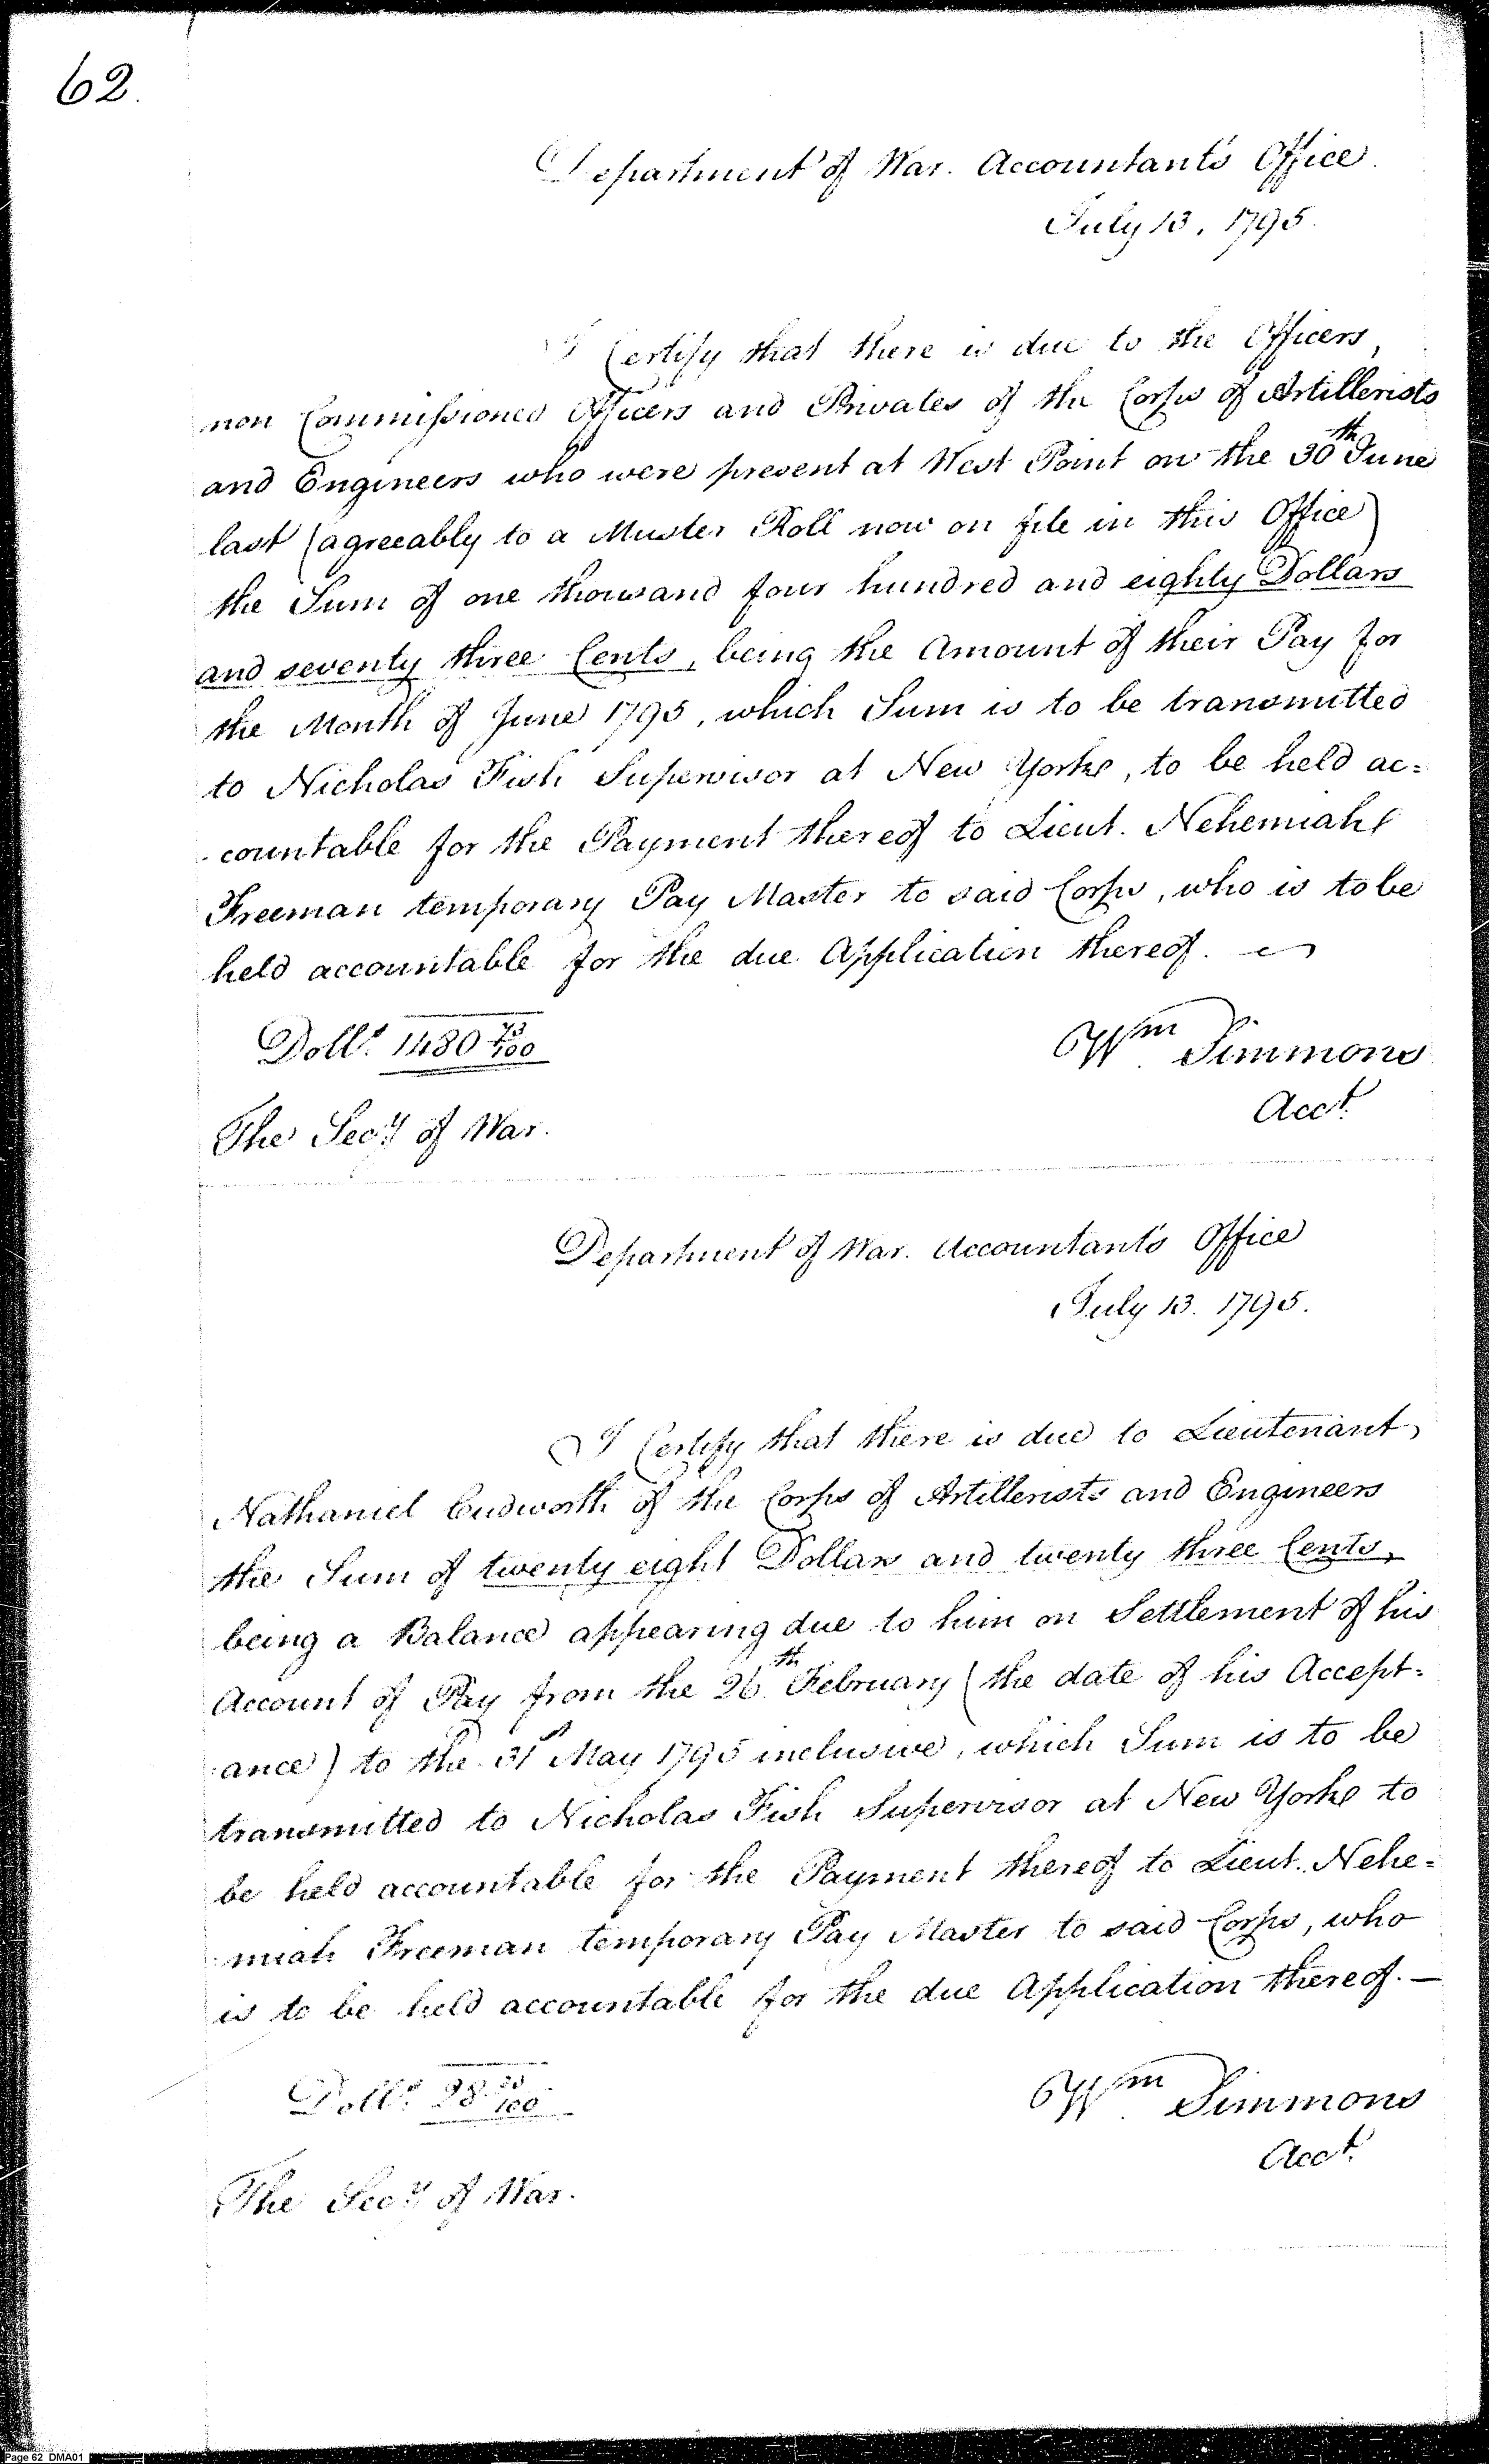 62.
Department of War. Accountant's Office
July 13, 1795.
I Certify that there is due to the Officers,
non Commissioned Officers and Privates of the Corps of Artillerists
and Engineers who were present at West Point on the 30th June
last (agreeably to a Muster Roll now on file in this Office)
the Sum of one thousand four hundred and eighty Dollars
and seventy three Cents, being the Amount of their Pay for
the Month of June 1795, which Sum is to be transmitted
to Nicholas Fish Supervisor at New York, to be held ac=
countable for the Payment thereof to Lieut. Nehemiah
Freeman temporary Pay Master to said Corps, who is to be
held accountable for the due Application thereof.
Dolls. 1480 73/100
Wm Simmons
Acct.
The Secy of War.
Department of War. Accountant's Office
July 13. 1795.
I Certify that there is due to Lieutenant
Nathaniel Cudworth of the Corps of Artillerists and Engineers
the Sum of twenty eight Dollars and twenty three Cents,
being a Balance appearing due to him on Settlement of his
Account of Pay from the 26th February (the date of his Accept=
ance) to the 31st May 1795 inclusive, which Sum is to be
transmitted to Nicholas Fish Supervisor at New York to
be held accountable for the Payment thereof to Lieut. Nehe=
miah Freeman temporary Pay Master to said Corps, who
is to be held accountable for the due Application thereof. —
Dolls. 28 23/100
Wm Simmons
Acct.
The Secy of War.
Page 62 DMA01